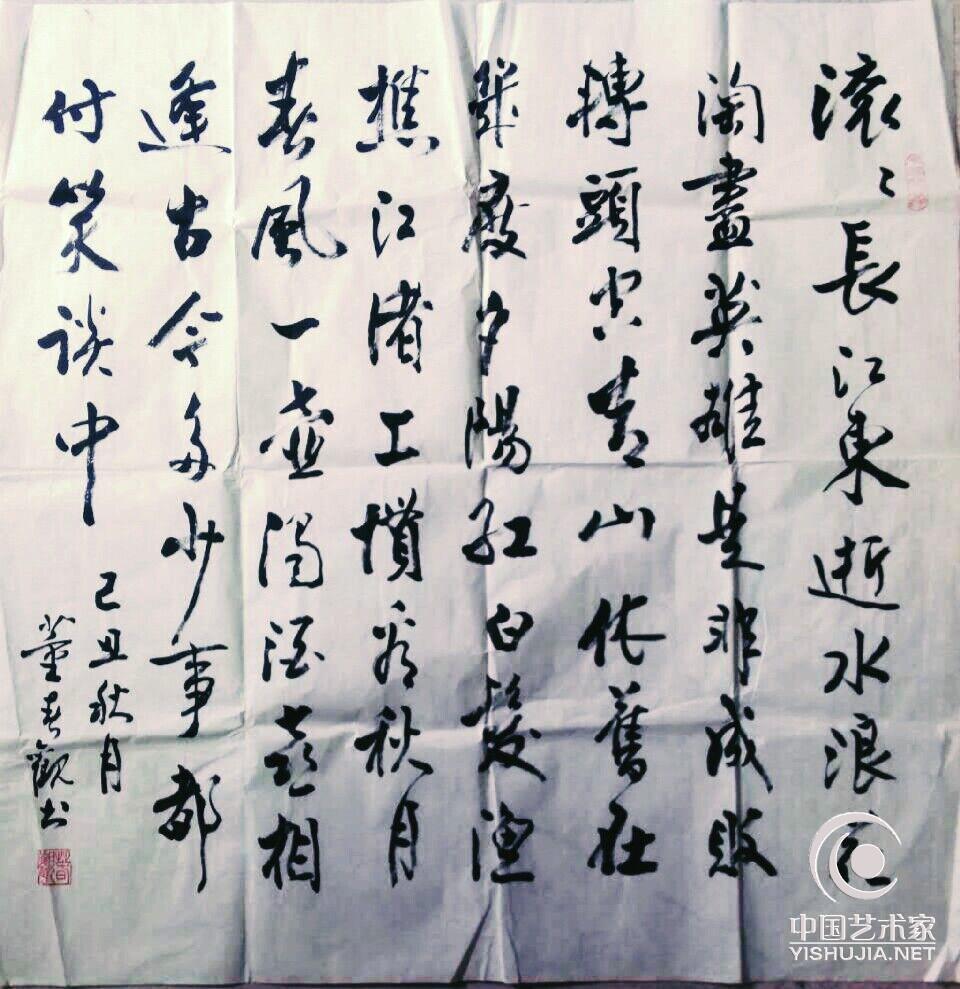 滚〻長江東逝水浪花
淘盡英雄是非成敗
轉頭空青山依舊在
幾度夕陽紅白髮漁
樵江渚上慣看秋月
春風一壺濁酒喜相
逢古今多少事都
付笑談中 己丑秋月
董春觀书
中国艺术家
YISHUJIA.NET